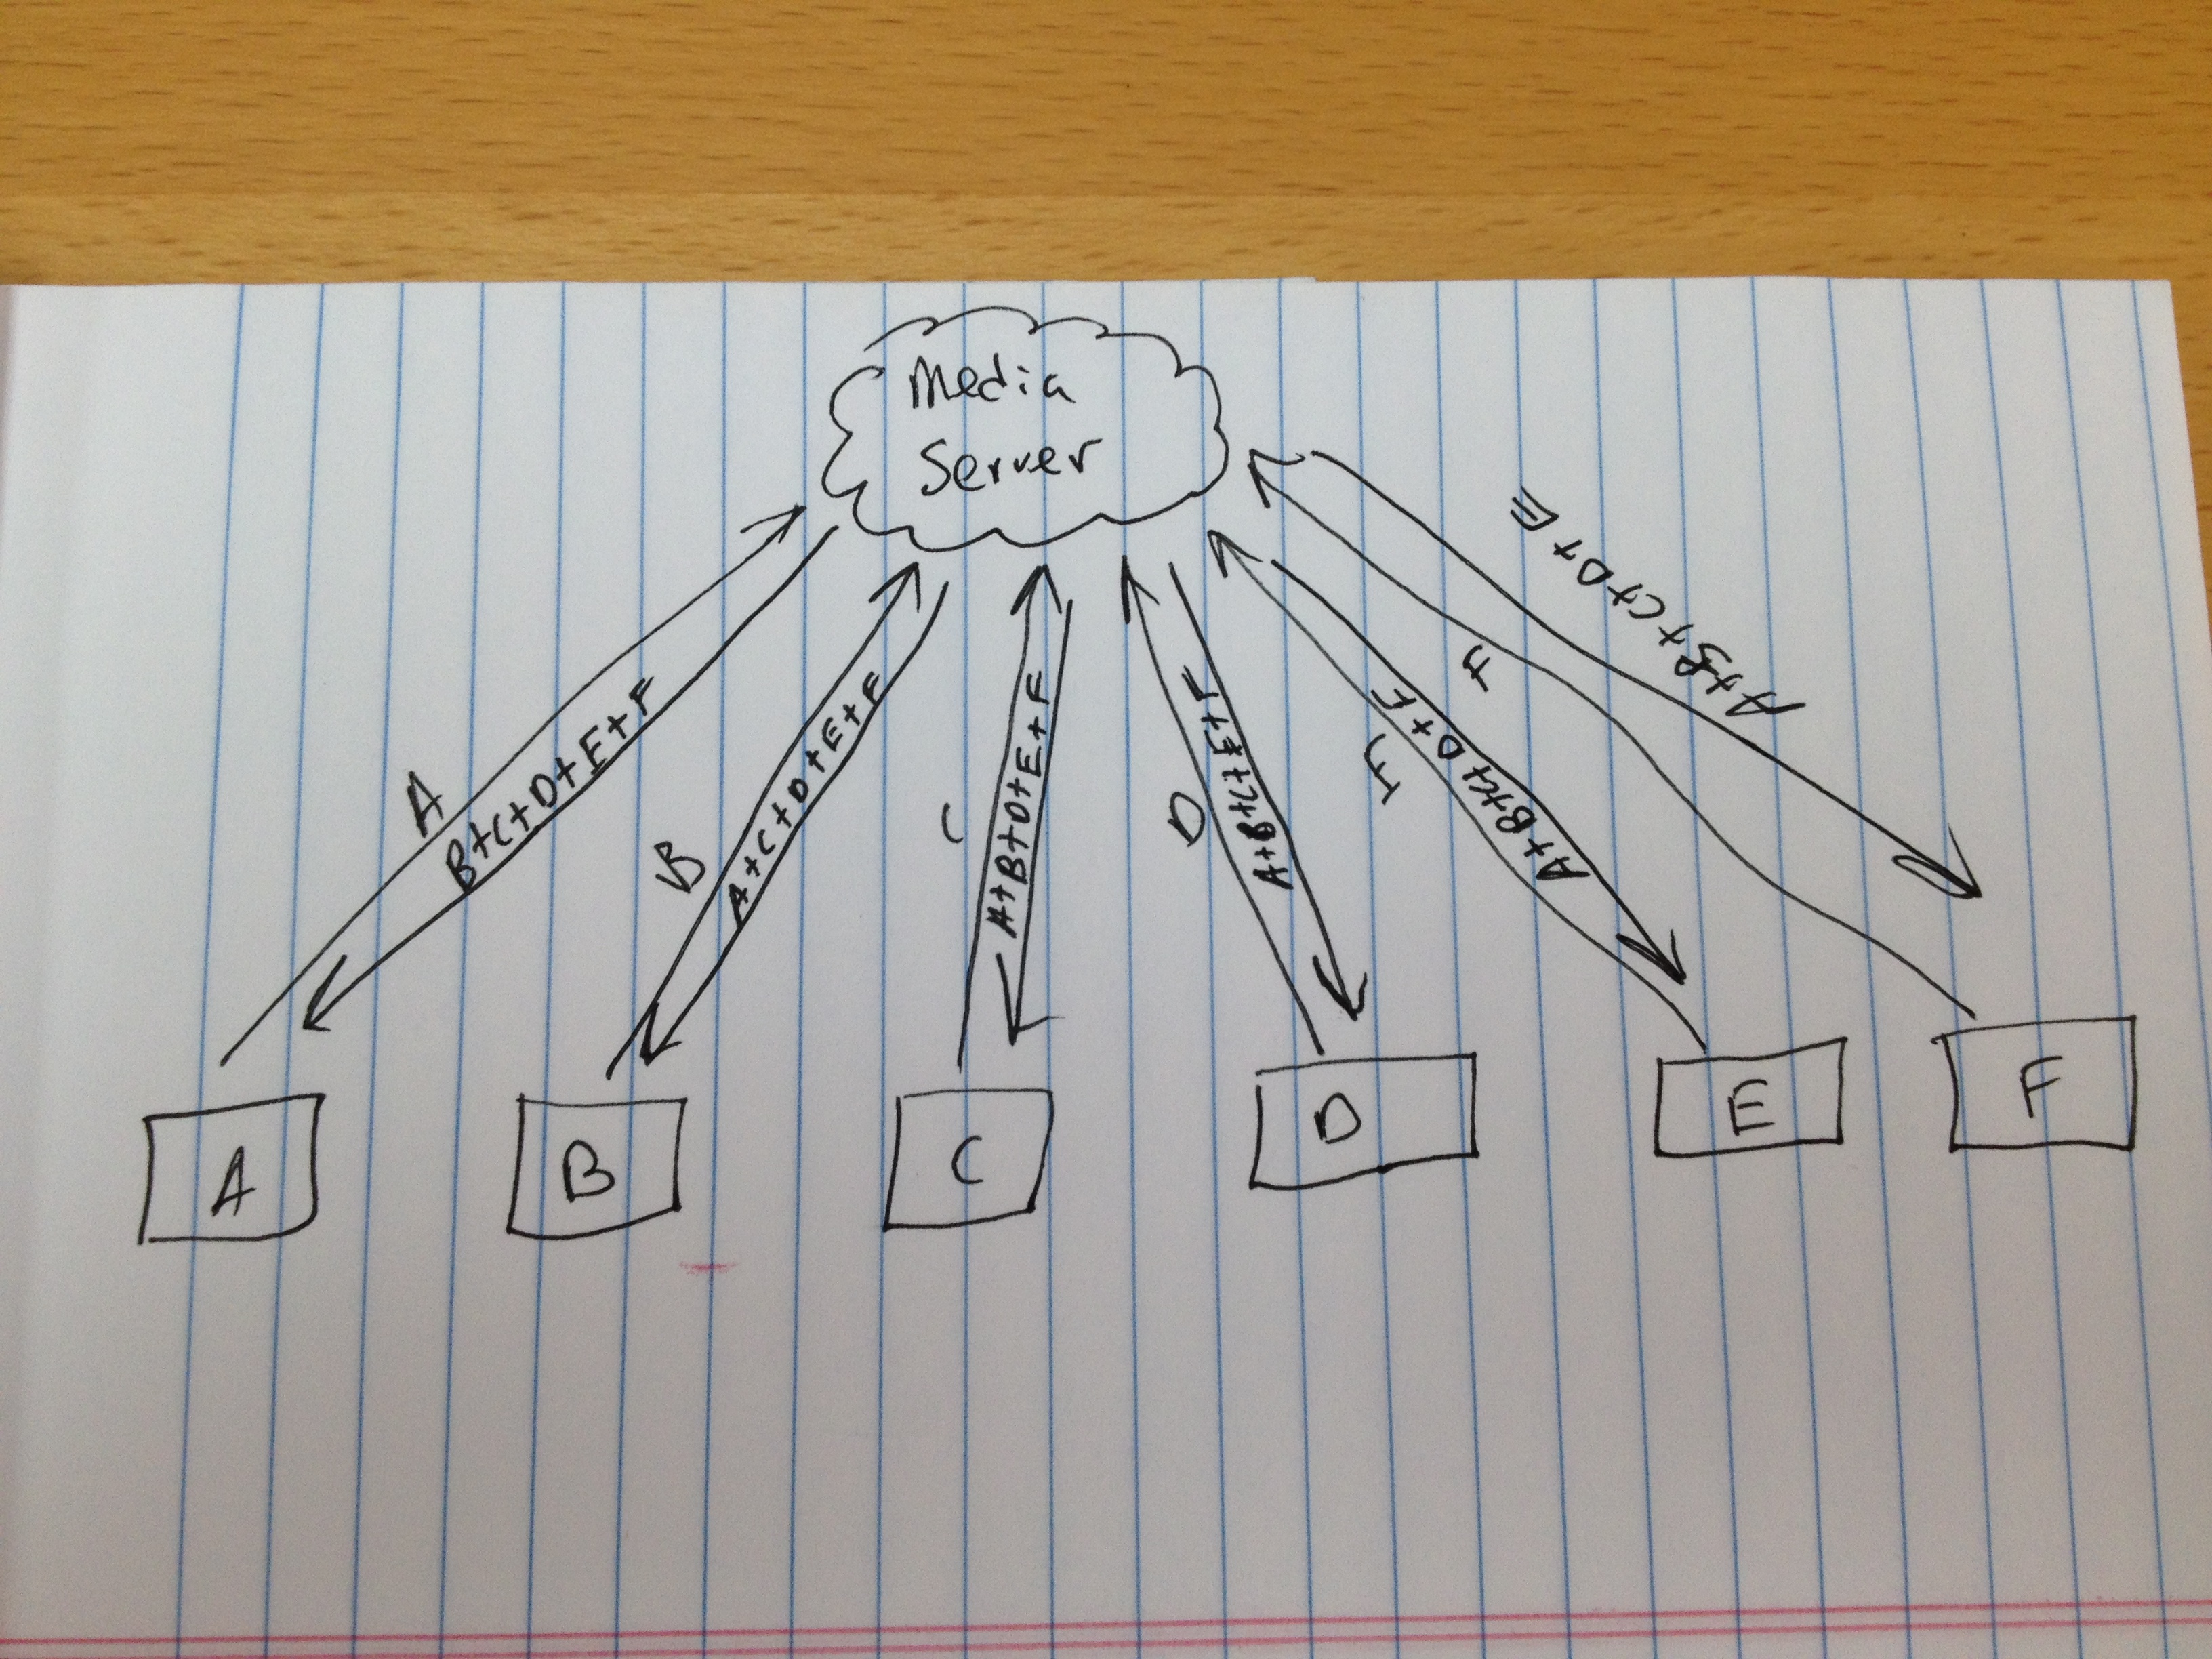 Media
Server
A
B+C+D+E+F
B
A+C+D+E+F
C
A+B+D+E+F
D
A+B+C+E+F
E
A+B+C+D+F
F
A+B+C+D+E
A
B
C
D
E
F